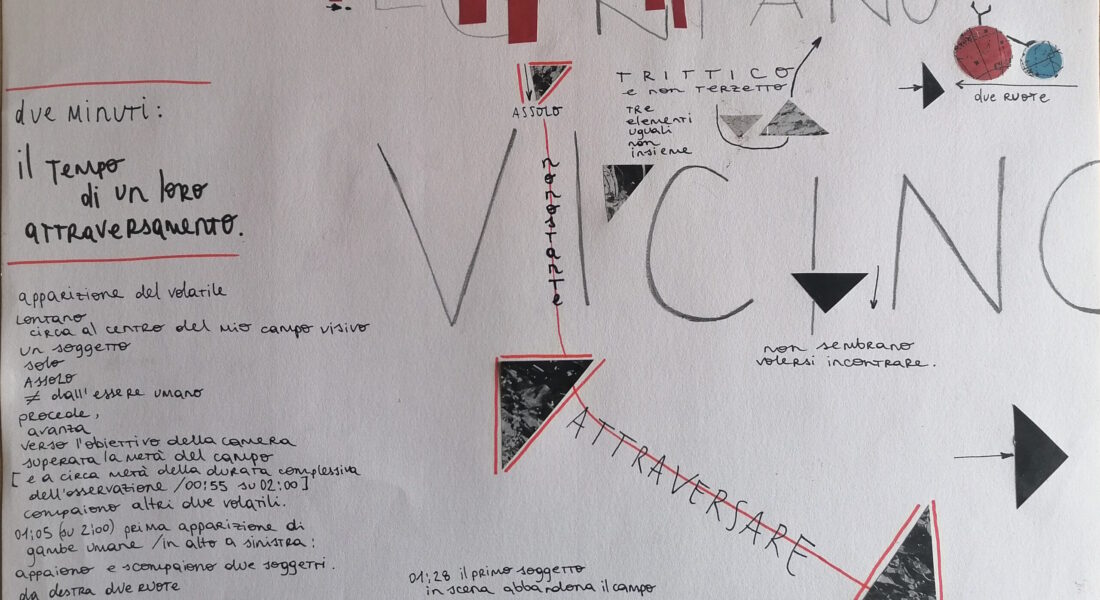 LONTANO
due minuti:
il Tempo
di un loro
attraversamento.
apparizione del volatile
Lontano
circa al centro del mio campo visivo
un soggetto
solo
Assolo
≠ dall'essere umano
procede,
avanza
verso l'obiettivo della camera
superata la metà del campo
[ e a circa metà della durata complessiva
dell'osservazione /00:55 su 02:00]
compaiono altri due volatili.
01:05 (su 2:00) prima apparizione di
gambe umane /in alto a sinistra:
appaiono e scompaiono due soggetti.
da destra due ruote
ASSOLO
nonostante
TRITTICO
e non TERZETTO
TRE
elementi
uguali
non
insieme
due ruote
VICINO
non sembrano
volersi incontrare.
ATTRAVERSARE
01:28 il primo soggetto
in scena abbandona il campo